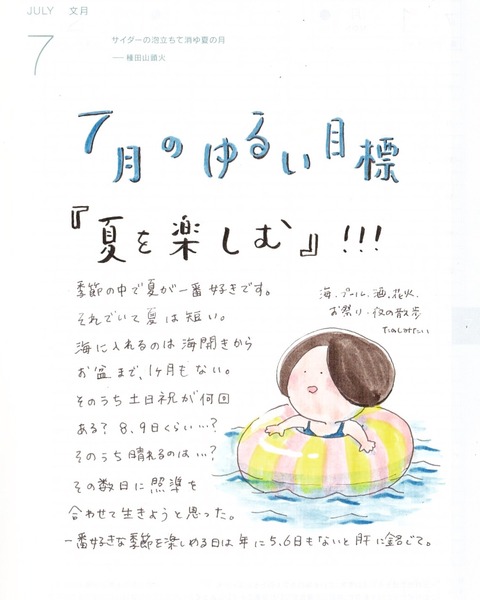 JULY 文月
7
サイダーの泡立ちて消ゆ夏の月
── 種田山頭火
7月のゆるい目標
『夏を楽しむ』!!!
季節の中で夏が一番好きです。
それでいて夏は短い。
海に入れるのは海開きから
お盆まで、1ヶ月もない。
そのうち土日祝が何回
ある? 8、9日くらい…?
そのうち晴れるのは…?
その数日に照準を
合わせて生きようと思った。
一番好きな季節を楽しめる日は年に5、6日もないと肝に銘じて。
海、プール、酒、花火、
お祭り・夜の散歩
たのしみたい